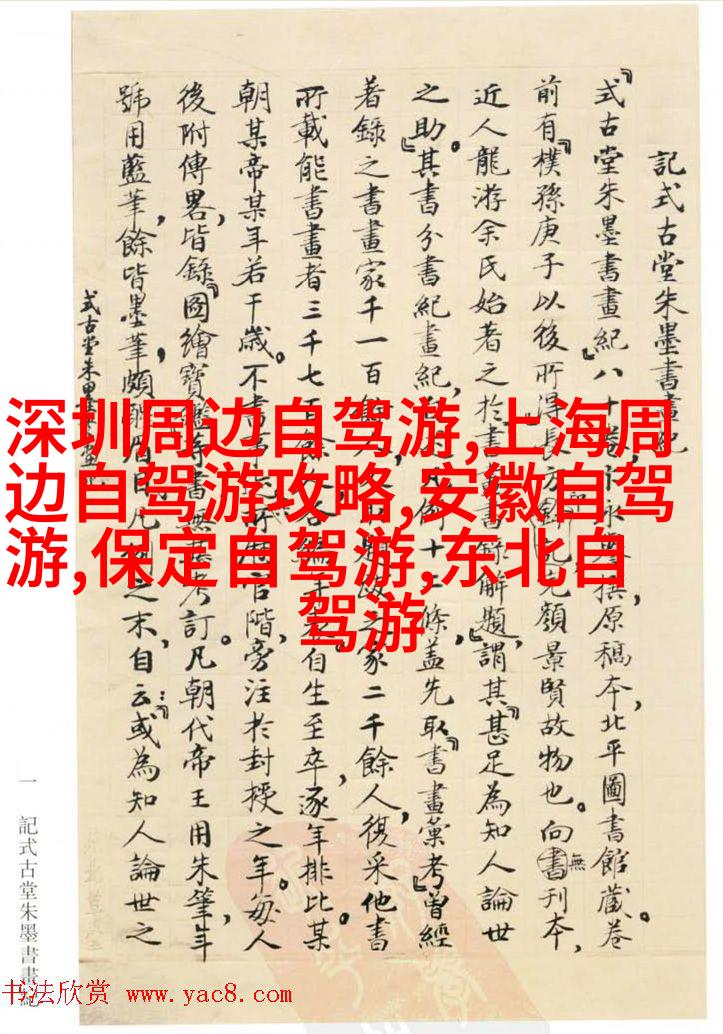 記式古堂朱墨書畫紀
『式古堂朱墨書畫紀』八十卷,卞永譽撰,原稿本,北平圖書館藏。卷
前有『樸孫庚子以後所得』長方印記,完顏景賢故物也。向無刊本,
近人龍游余氏始著之於書畫書錄解題,謂其『甚足為知人論世
之助』。其書分書紀畫紀,
著錄之書畫家千一百餘人,
家二千餘人,復采他書
十二條,蓋先取『書畫彙考』曾經
所載能書畫者三千七百餘人,
自生至卒,逐年排比。某
朝某帝某年若干歲。不書
官階,旁注於封授之年。每人
後附傳畧,皆錄『圖繪寶鑑』
考訂。凡朝代帝王用朱筆,年
號用藍筆,餘皆墨筆,頗
之末,自云:『或為知人論世之
式古堂朱墨書畫
深圳周边自驾游,上海周
边自驾游攻略,安徽自驾
游,保定自驾游,东北自
驾游
一
記式古堂朱墨書畫紀
书法欣赏 www.yac8.com